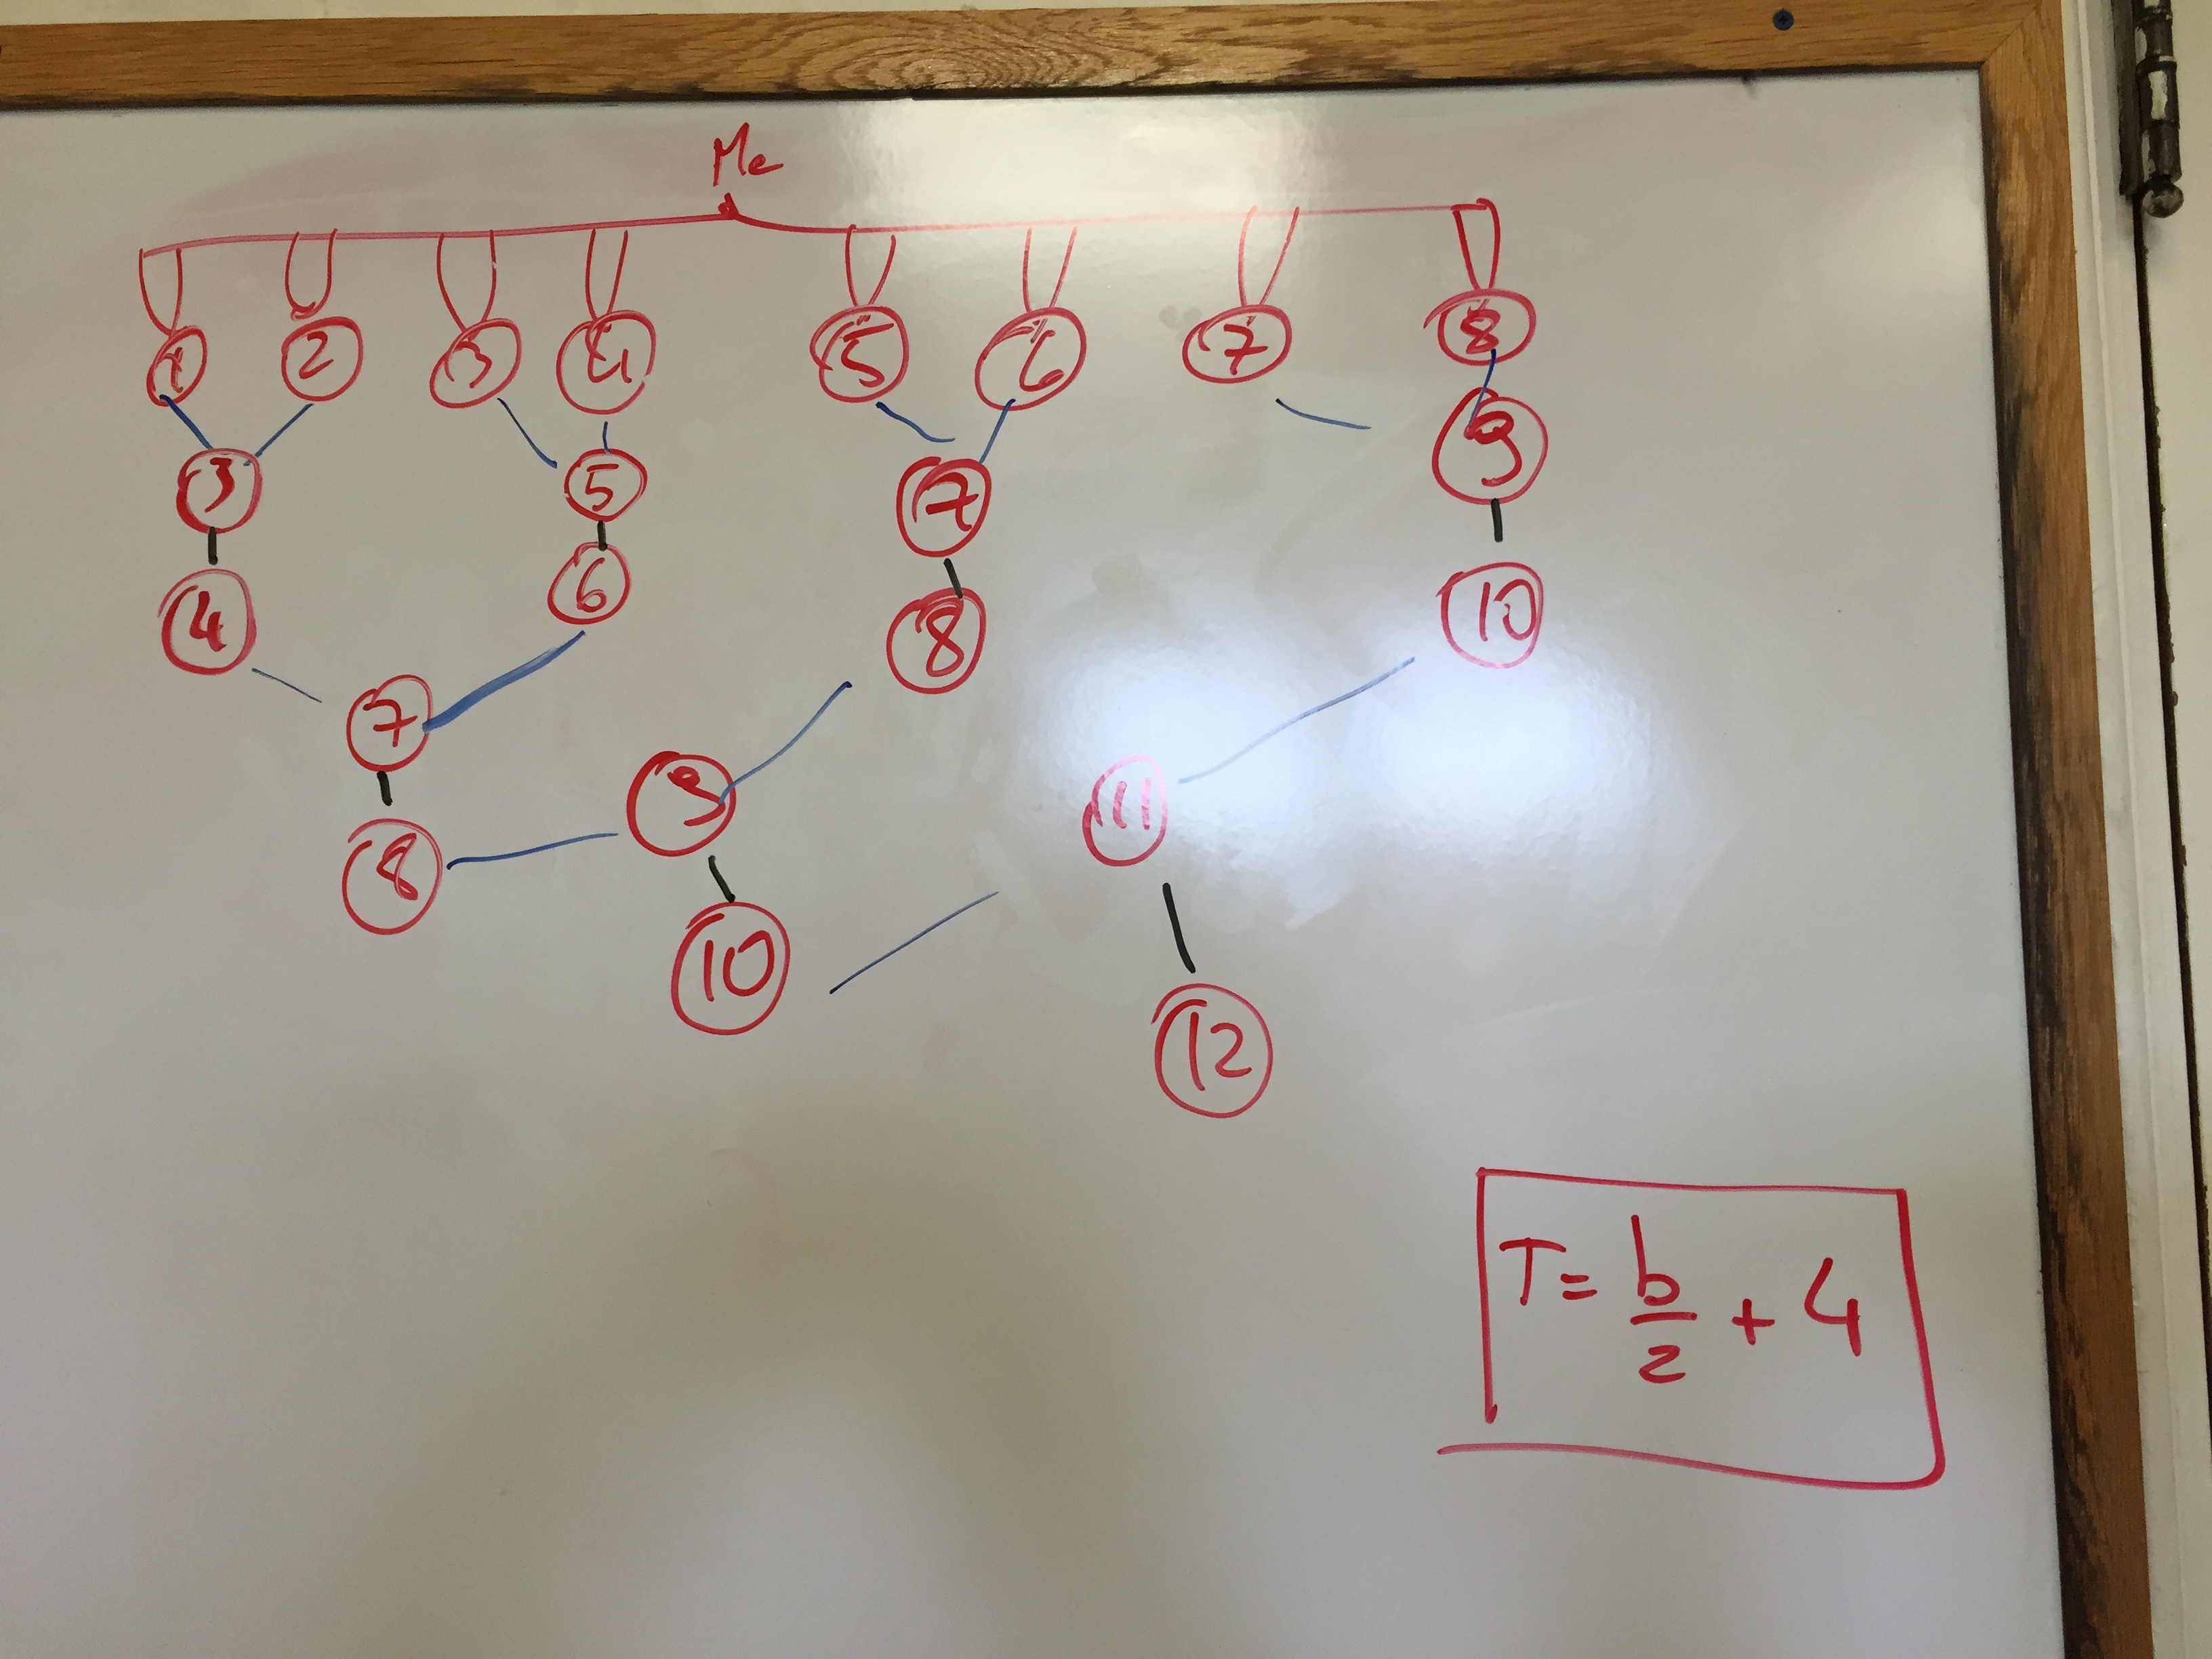 Me
1 2 3 4 5 6 7 8
3 5 7 9
4 6 8 10
7 9 11
8 10 12
T = b/2 + 4